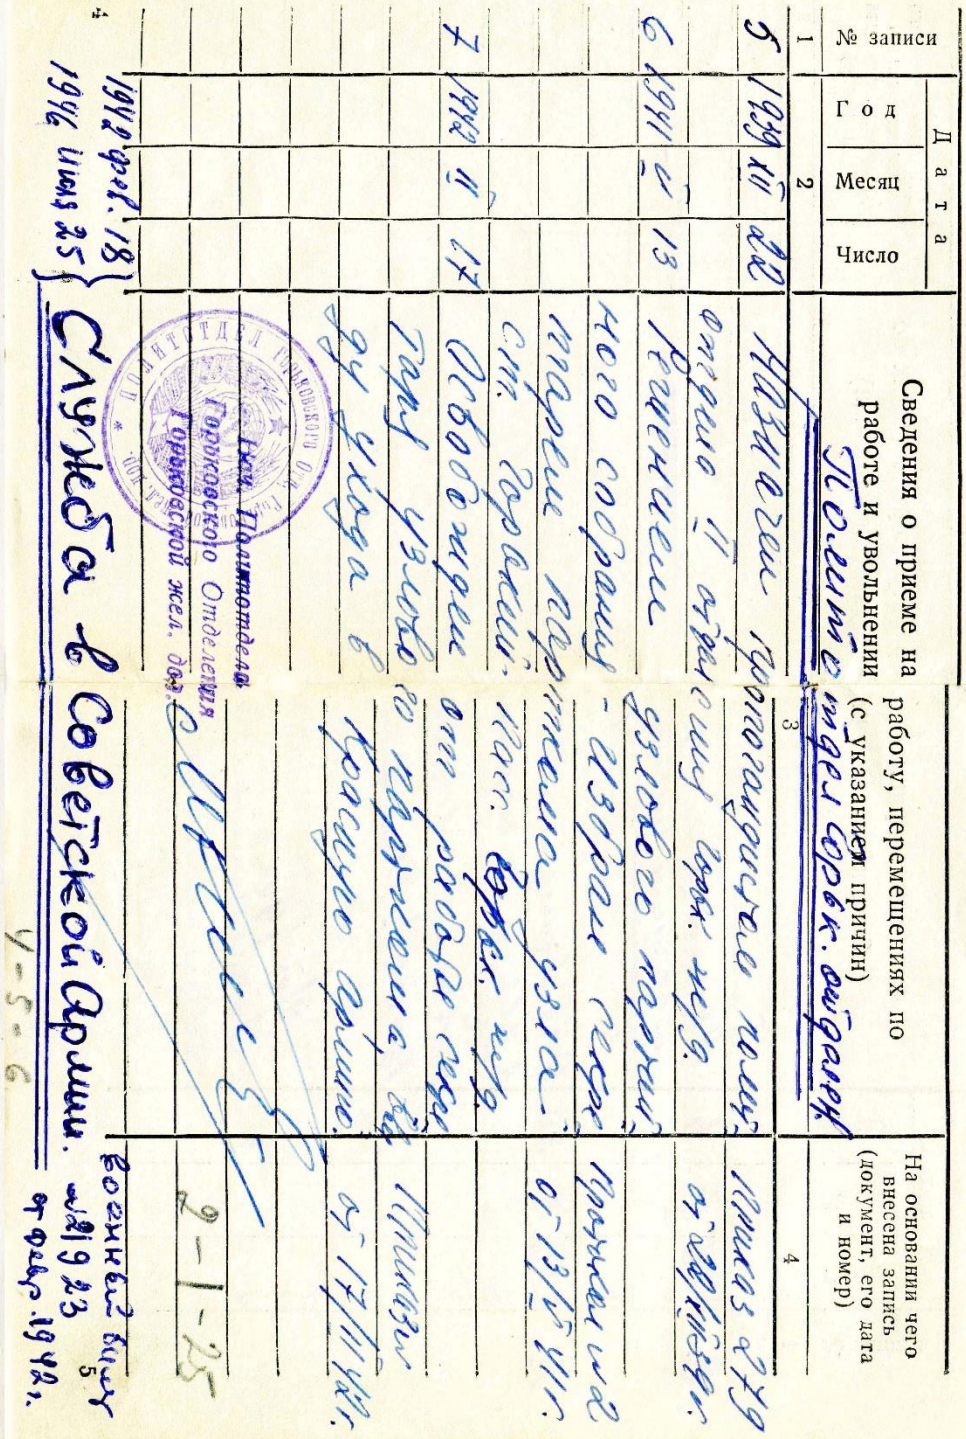 № записи
Дата
Год
Месяц
Число
Сведения о приеме на работу, перемещениях по
работе и увольнении (с указанием причин)
На основании чего
внесена запись
(документ, его дата
и номер)
1 2 3 4
Политотдел Горьк. отделен.
5 1939 XII 22 Назначен пропагандистом полит-
отдела II отделения Горьк. ж/д.
Приказ 279
от 22/XII 39 г.
6 1941 V 13 Решением узлового партий-
ного собрания - избран секре-
тарем парткома узла
ст. Горький-Пасс. Горьк. ж/д.
Протокол №2
от 13/V 41 г.
7 1942 II 17 Освобожден от работы секре
таря узлового парткома, вви
ду ухода в Красную армию.
Приказ
от 17/II 42 г.
Нач. Политотдела
Горьковского Отделения
Горьковской жел. дор.
ПОЛИТОТДЕЛ ГОРЬКОВСКОГО ОТД.
2-1-25
1942 фев. 18
1946 июня 25
Служба в Советской Армии.
военный билет
№21923
от февр. 1942 г.
4-5-6
4
5